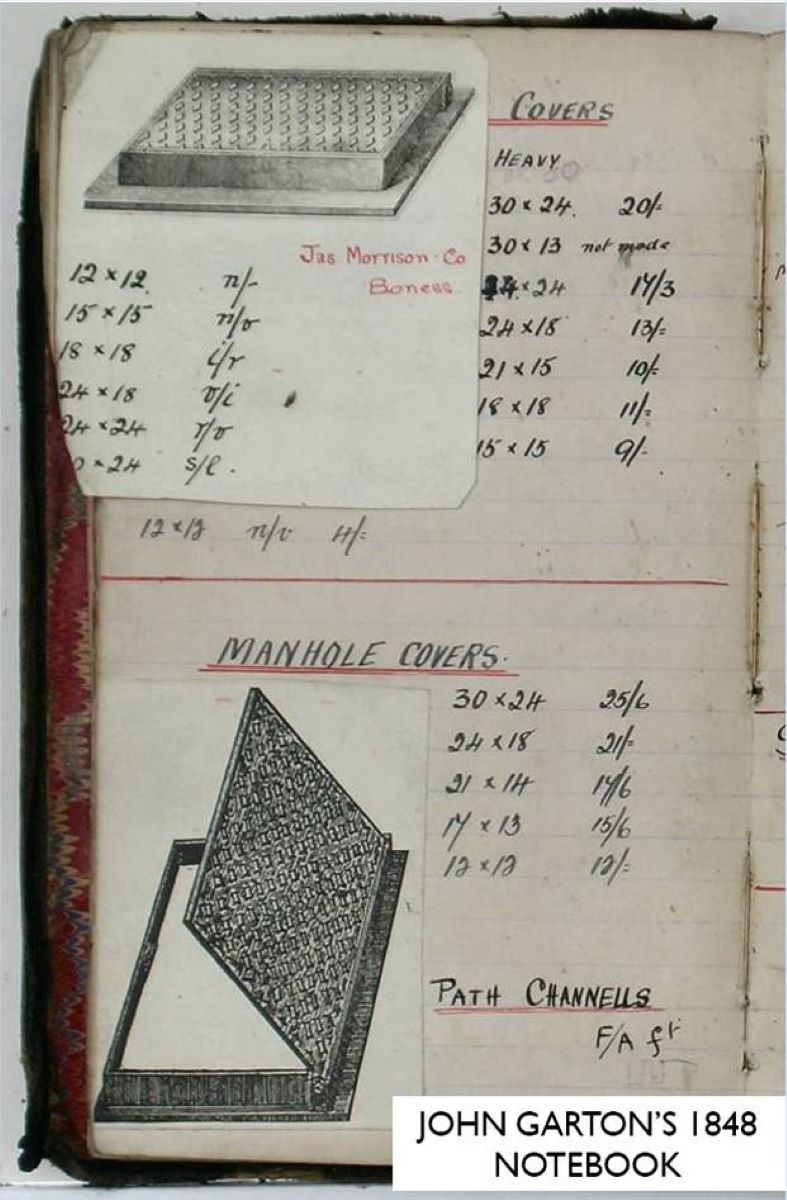 COVERS
HEAVY
30 x 24. 20/-
30 x 13 not made
24 x 24 17/3
24 x 18 13/-
21 x 15 10/-
18 x 18 11/-
15 x 15 9/-
Jas Morrison Co
Boness
12 x 12 n/-
15 x 15 n/o
18 x 18 i/r
24 x 18 o/i
24 x 24 r/o
0 x 24 s/l.
12 x 12 n/o 4/-
MANHOLE COVERS.
30 x 24 25/6
24 x 18 21/-
21 x 14 17/6
17 x 13 15/6
12 x 12 12/-
PATH CHANNELLS
F/A ft
JOHN GARTON'S 1848
NOTEBOOK